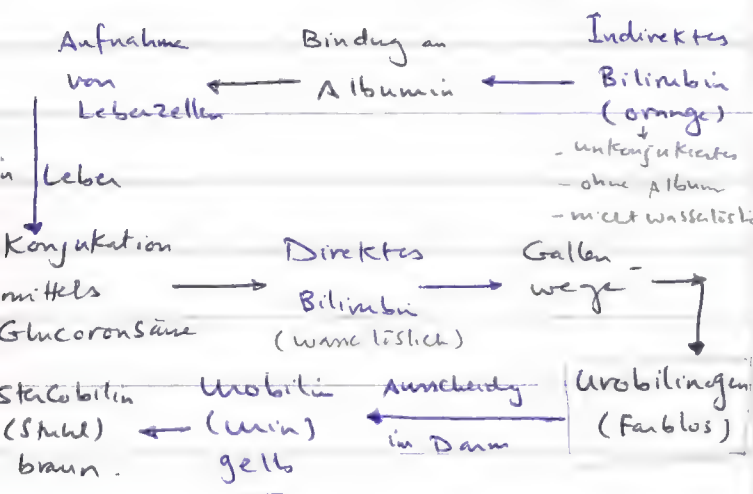 Indirektes
Bilirubin
(orange)
- unkonjukiertes
- ohne Album
- nicht wasserlösli
Bindung an
Albumin
Aufnahme
von
Leberzellen
in Leber
Konjukation
mittels
Glucoronsäure
Direktes
Bilirubin
(wasserlöslich)
Gallen-
wege
Urobilinogen
(Farblos)
Ausscheidung
im Darm
Urobilin
(urin)
gelb
Stercobilin
(Stuhl)
braun.